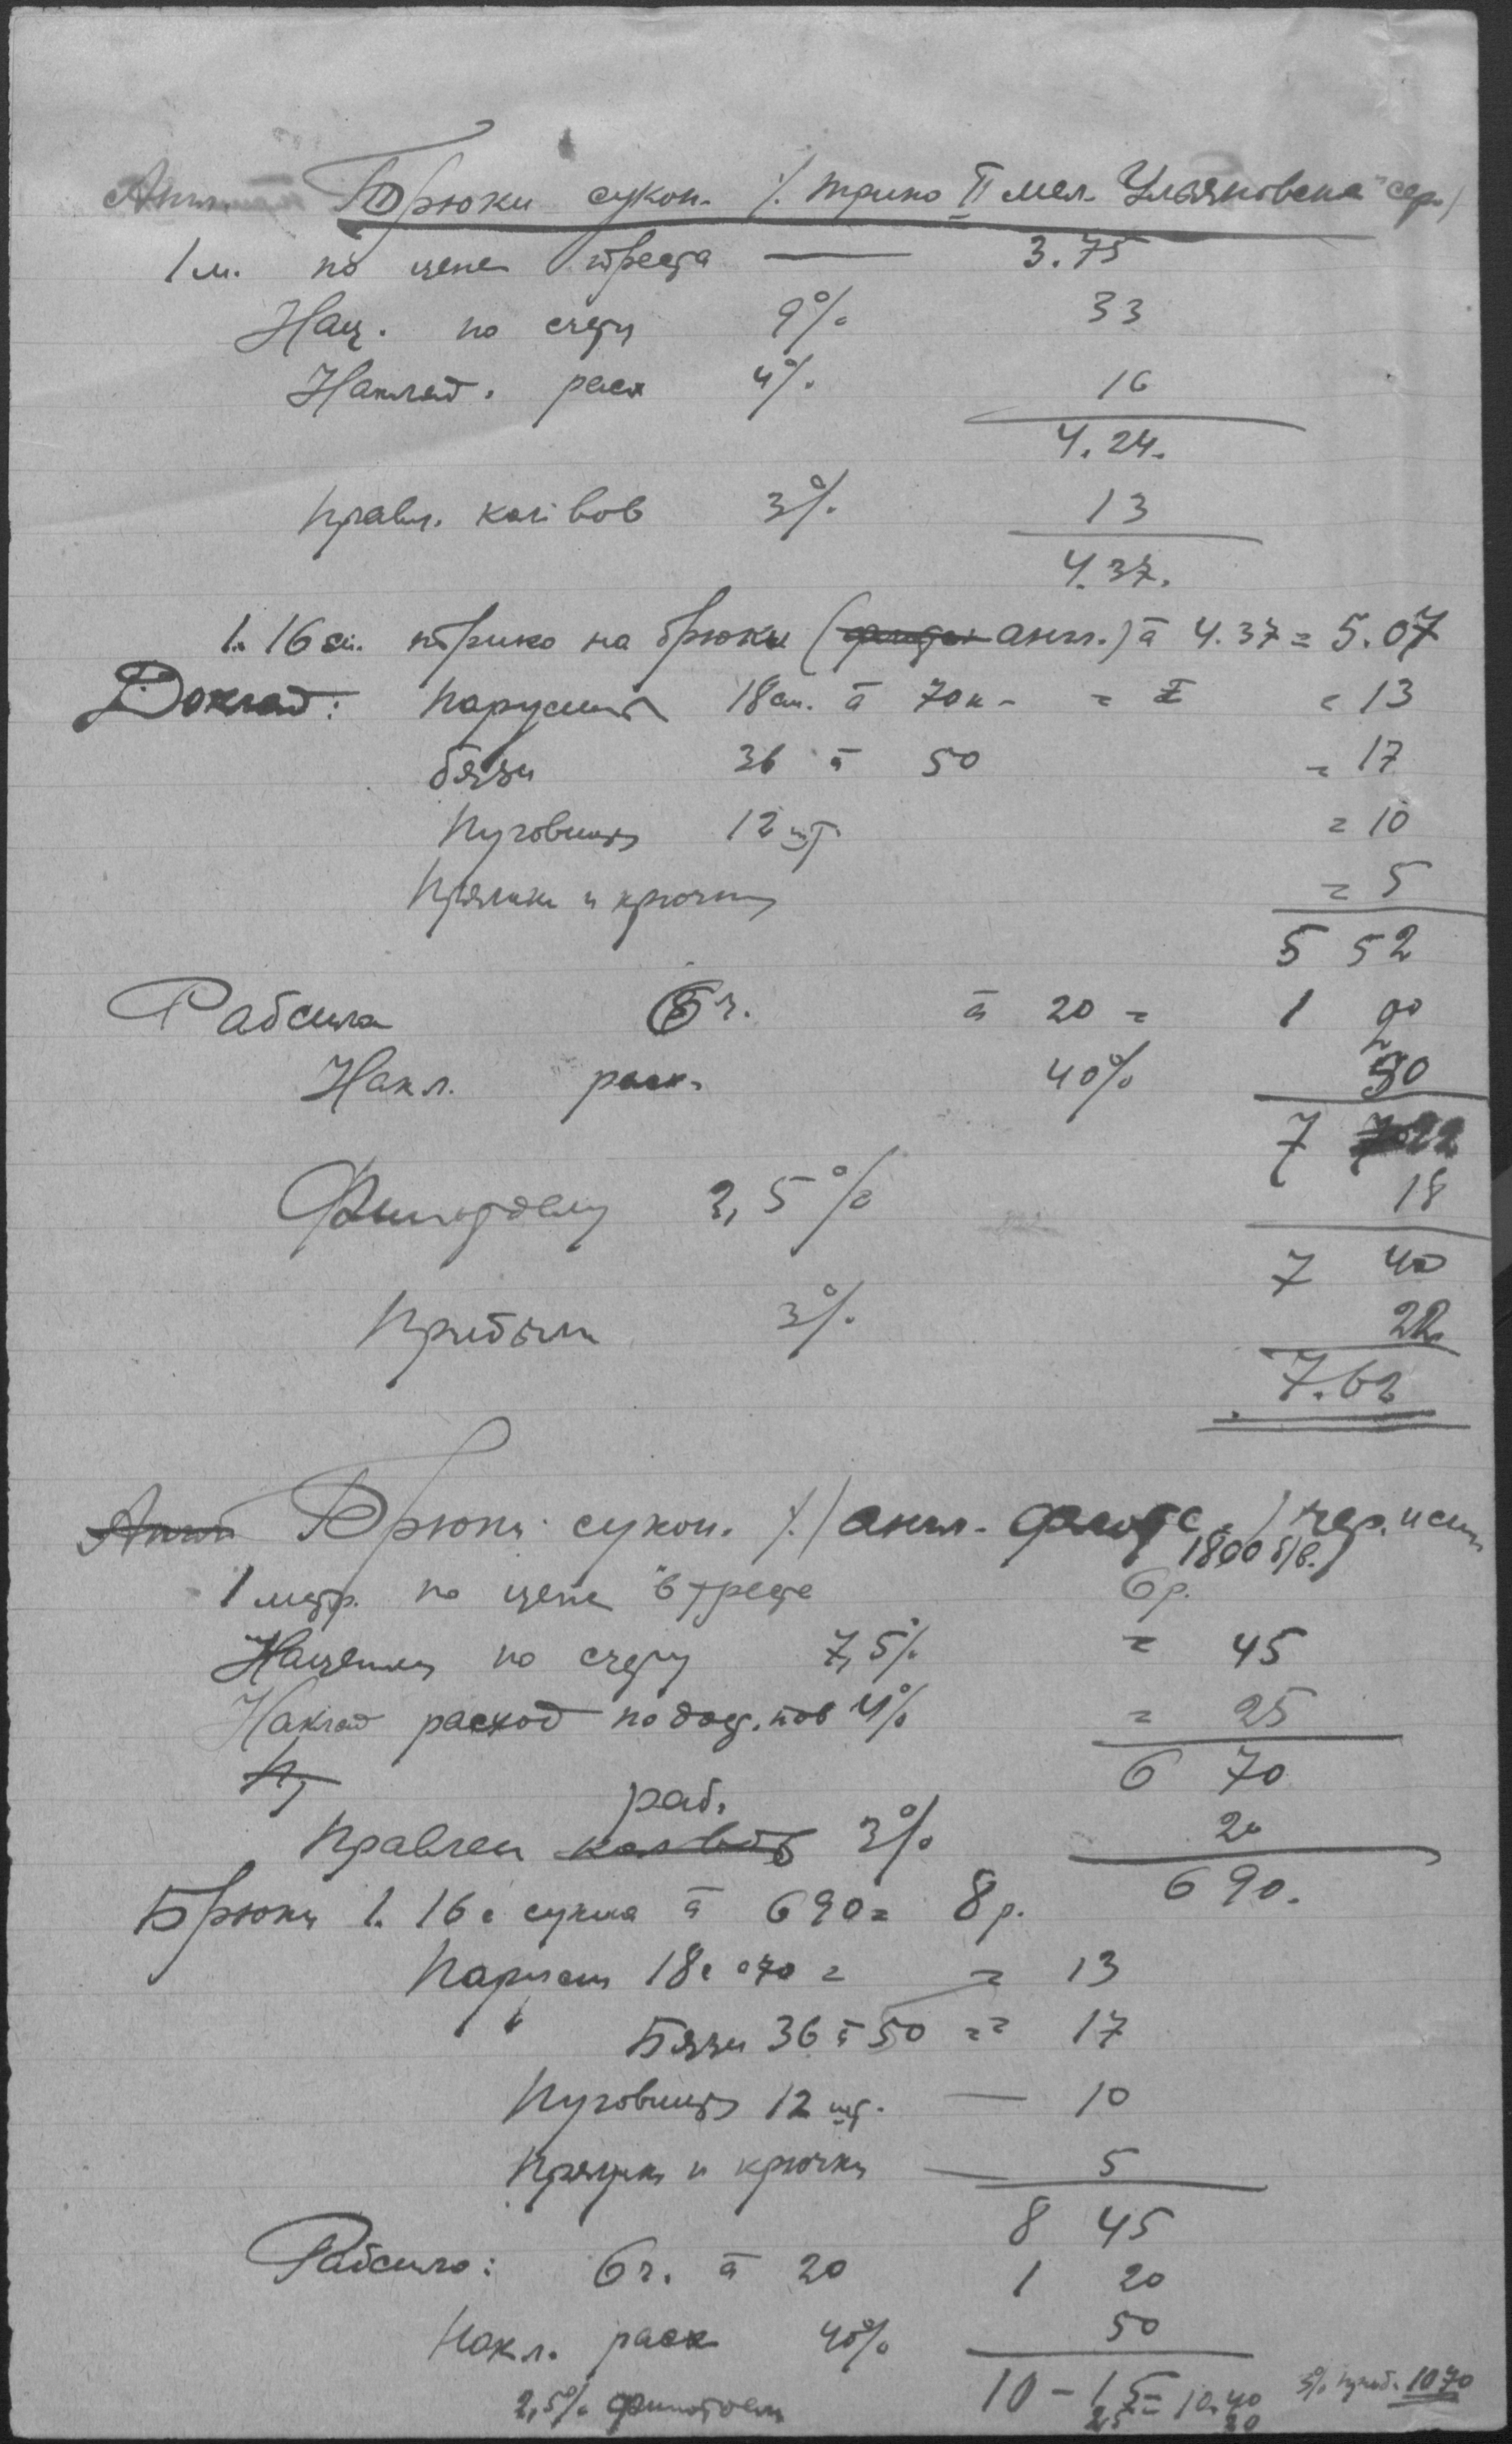 Брюки сукон. /. трико II мел. Ульяновска" сер./
1 м. по цене треста — 3.75
Нац. по счету 9% 33
Наклад. расх 4% 16
4.24.
Правл. 3% 13
4.37.
1.16 см. трико на брюки (англ.) à 4.37 = 5.07
Доклад: Парусина 18 см. à 70 к - = = 13
бязи 36 à 50 = 17
Пуговицы 12 шт. = 10
Пряжки и крючки = 5
5 52
Рабсила 5 ч. à 20 = 1
Накл. расх. 40%
7 22
Финотделу 2,5% 18
7 40
Прибыли 3% 22
7.62
Брюки сукон. /./ англ. / чер. и син
1800 б/в.)
1 метр. по цене в тресте 6 р.
Наценки по счету 7,5% = 45
Наклад расход по дост. тов 4% = 25
6 70
раб.
Правлен 3% 20
6 90.
Брюки 1.16 с сукна à 690 = 8 р.
Парусин 18 с à 70 = = 13
" Бязи 36 à 50 = = 17
Пуговицы 12 шт. — 10
Пряжки и крючки — 5
8 45
Рабсила: 6 ч. à 20 1 20
Накл. расх 40% 50
2,5% финотделу 10 - 15 = 10.40 3% приб. 1070
25 30